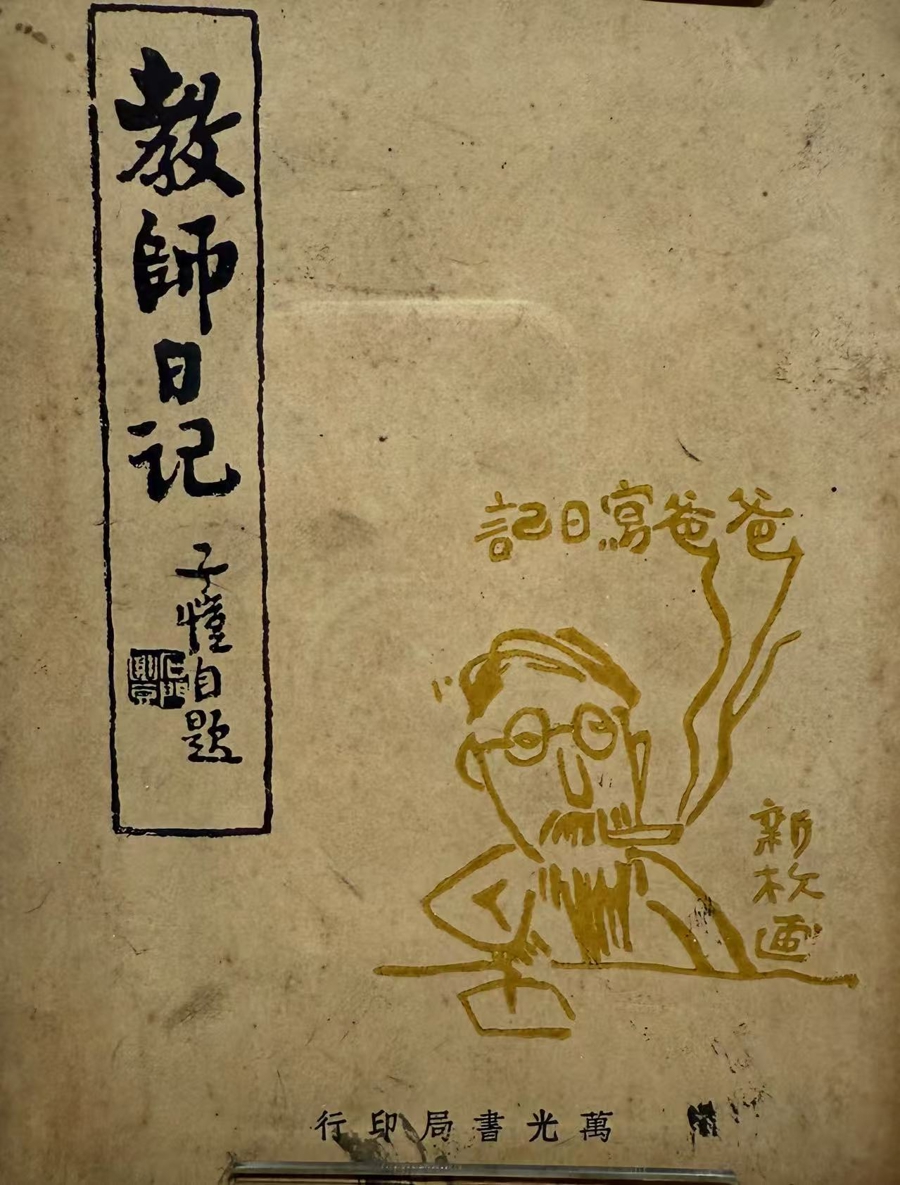 教師日记
子愷自題
爸爸寫日記
新枚画
萬光書局印行